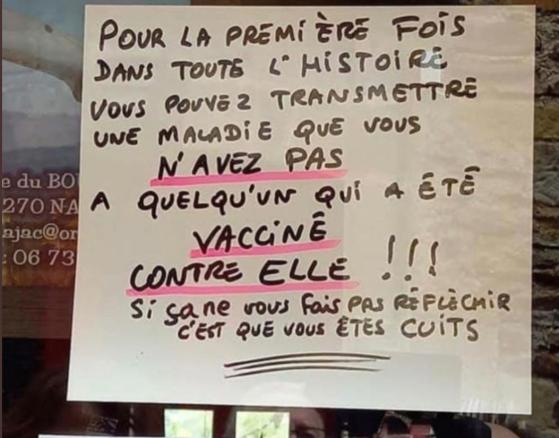 POUR LA PREMIÈRE FOIS
DANS TOUTE L'HISTOIRE
VOUS POUVEZ TRANSMETTRE
UNE MALADIE QUE VOUS
N'AVEZ PAS
A QUELQU'UN QUI A ÉTÉ
VACCINÉ
CONTRE ELLE !!!
Si ça ne vous fais PAS RÉFLÈCHIR
C'EST QUE VOUS ÊTES CUITS
e du BO
270 NA
ajac@or
: 06 73